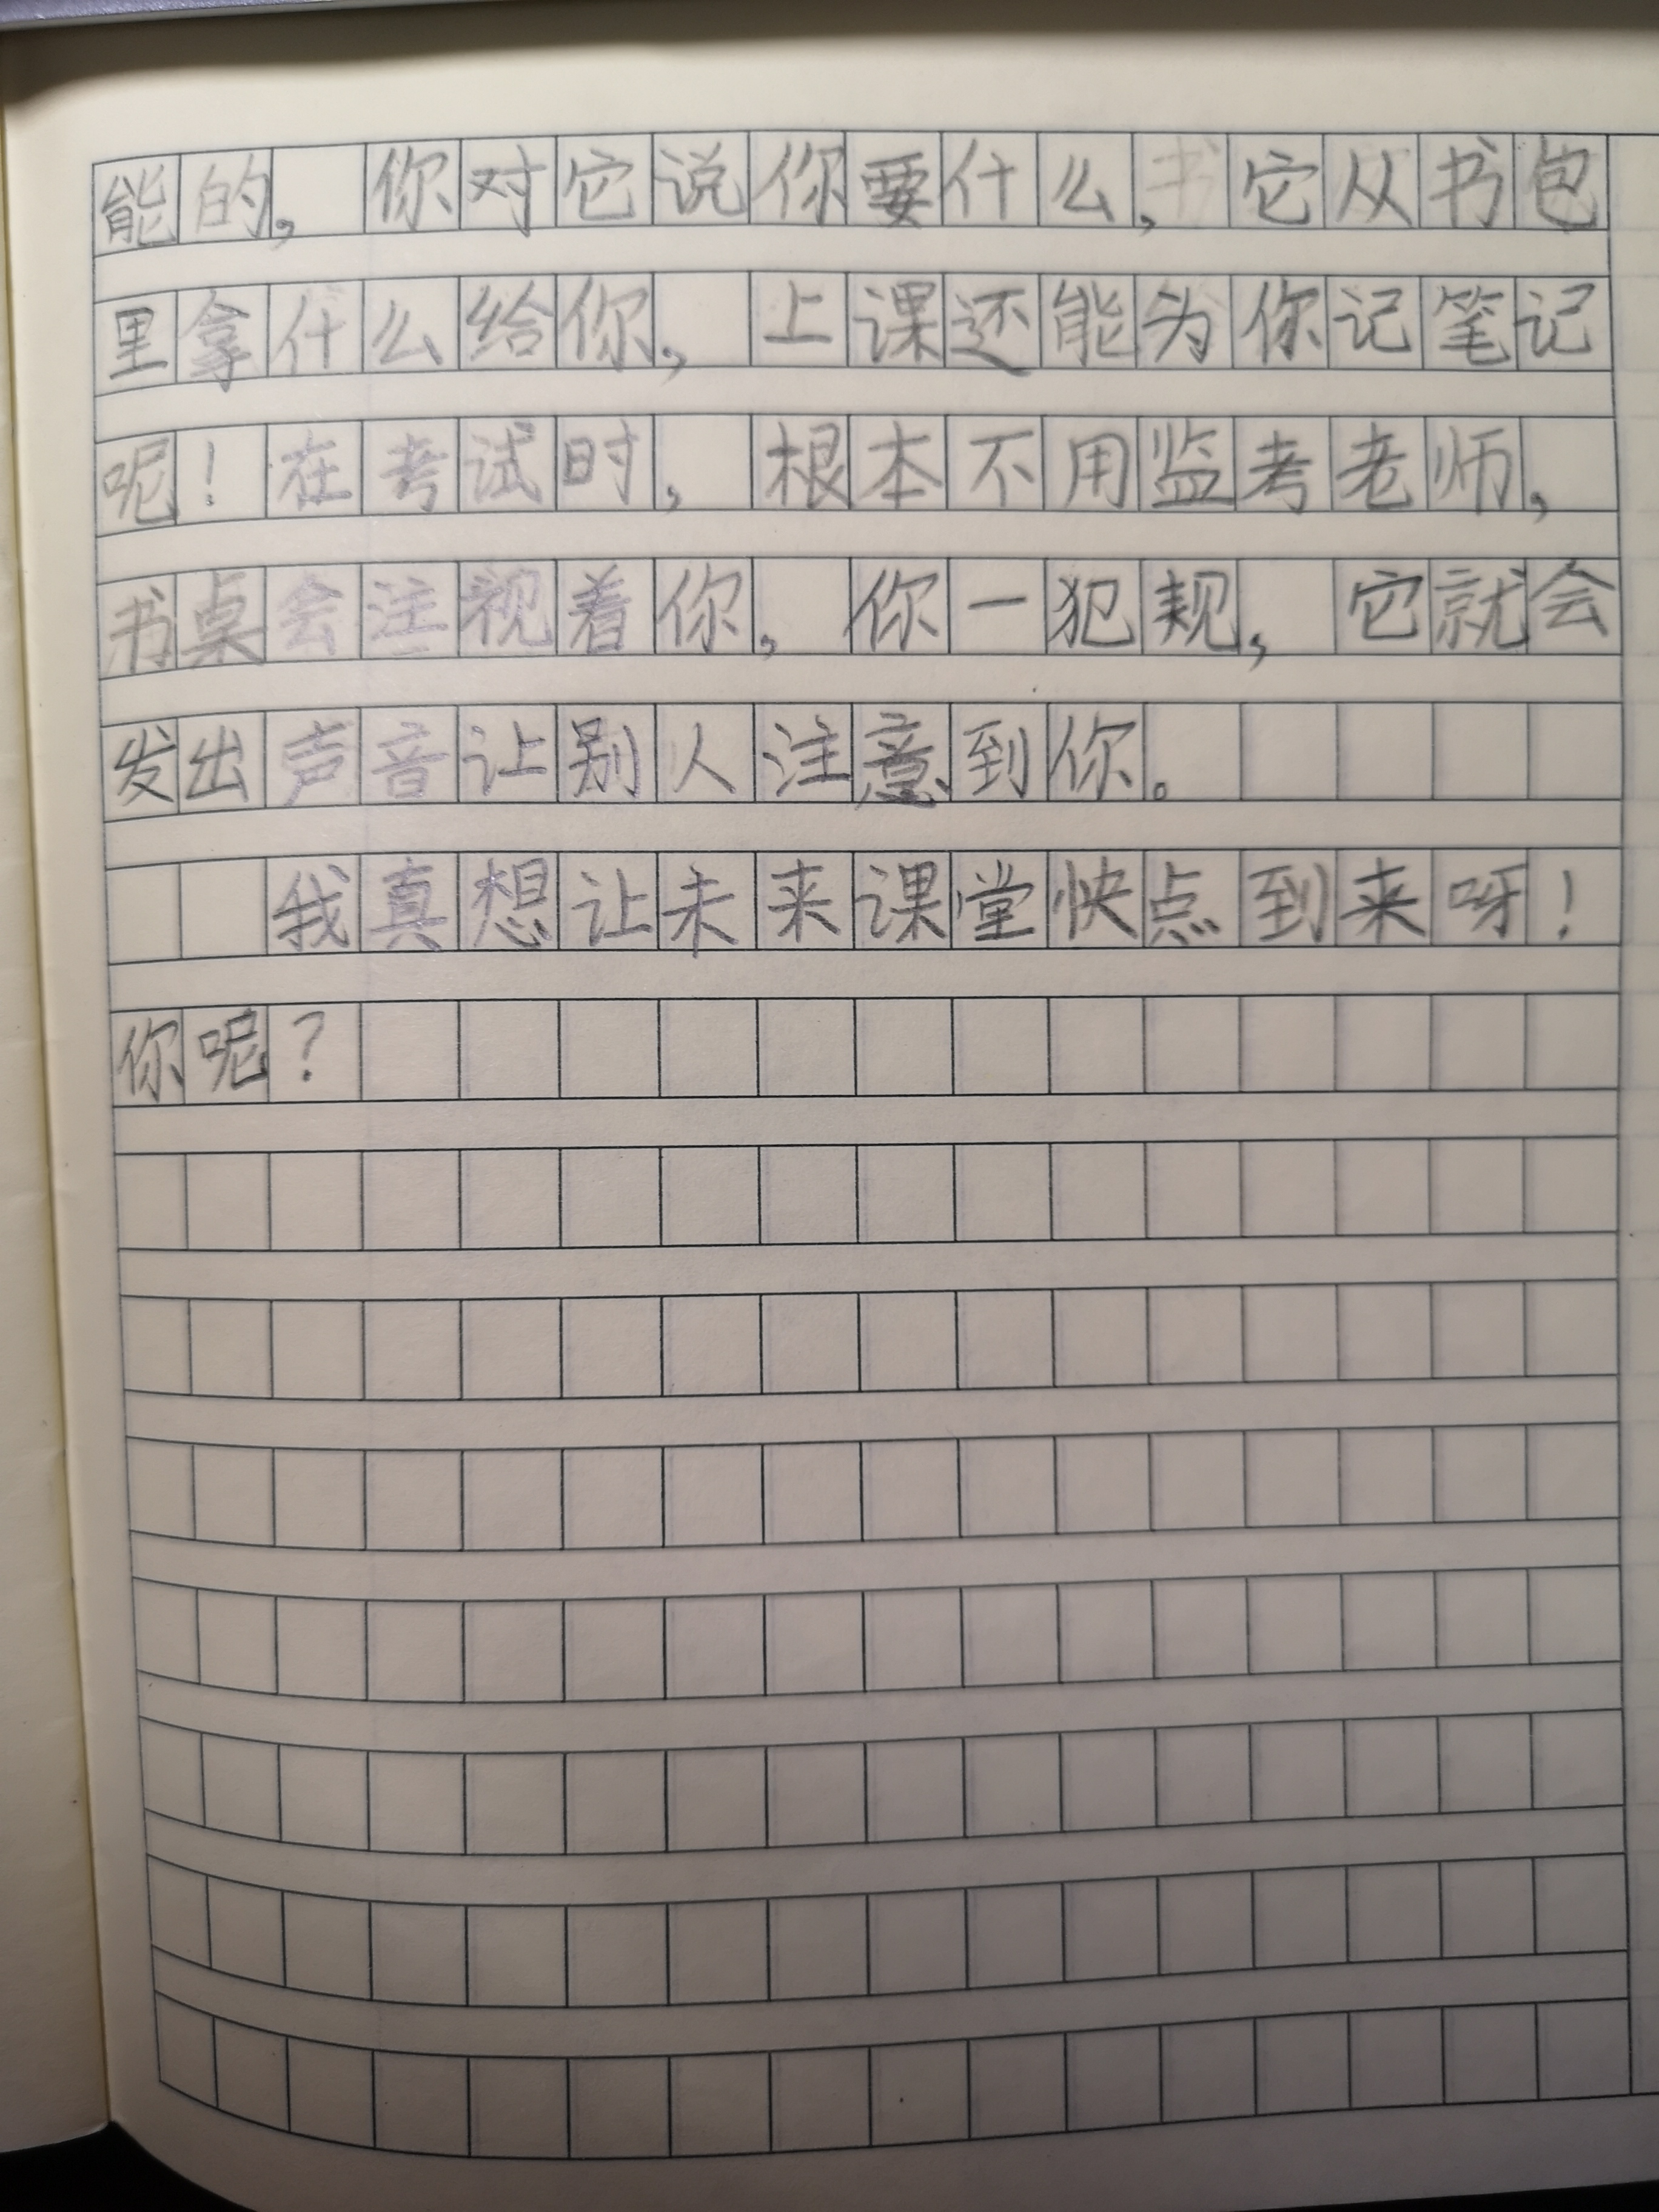 能的，你对它说你要什么，它从书包
里拿什么给你，上课还能为你记笔记
呢！在考试时，根本不用监考老师，
书桌会注视着你，你一犯规，它就会
发出声音让别人注意到你。
我真想让未来课堂快点到来呀！
你呢？